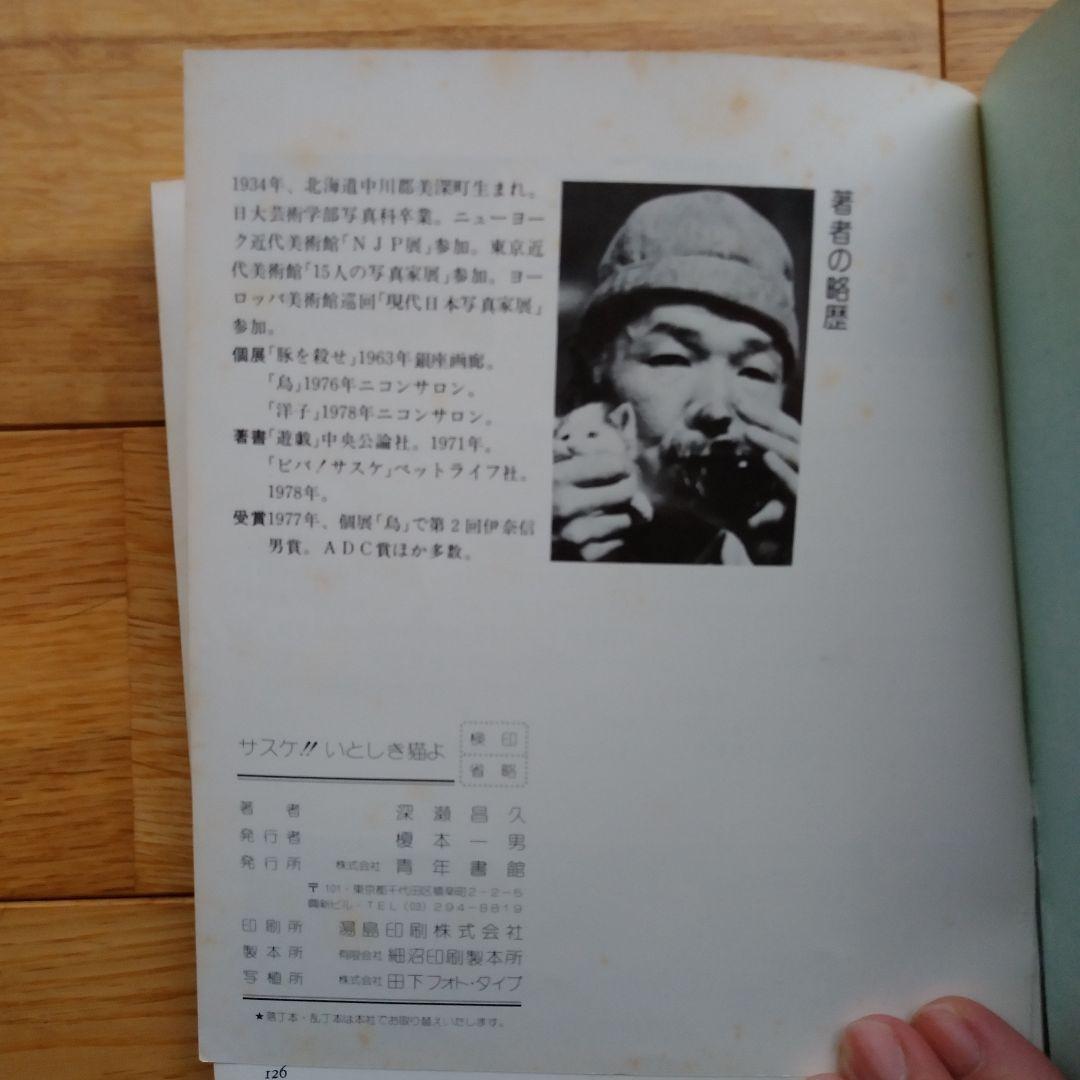 著者の略歴
1934年、北海道中川郡美深町生まれ。
日大芸術学部写真科卒業。ニューヨー
ク近代美術館「NJP展」参加。東京近
代美術館「15人の写真家展」参加。ヨー
ロッパ美術館巡回「現代日本写真家展」
参加。
個展「豚を殺せ」1963年銀座画廊。
「烏」1976年ニコンサロン。
「洋子」1978年ニコンサロン。
著書「遊戯」中央公論社。1971年。
「ビバ!サスケ」ペットライフ社。
1978年。
受賞1977年、個展「烏」で第2回伊奈信
男賞。ADC賞ほか多数。
サスケ!! いとしき猫よ
検印
省略
著者 深瀬昌久
発行者 榎本一男
発行所 株式会社 青年書館
〒101・東京都千代田区猿楽町2-2-5
興新ビル・TEL(03)294-8819
印刷所 湯島印刷株式会社
製本所 有限会社 細沼印刷製本所
写植所 株式会社 田下フォト・タイプ
★落丁本・乱丁本は本社でお取り替えいたします。
126